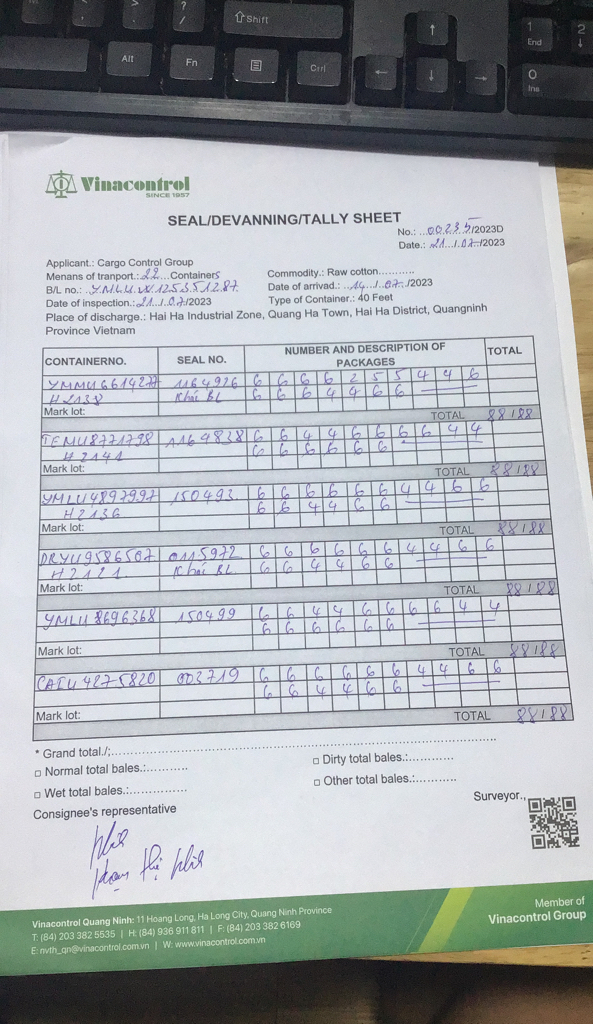 ?
/
⇧Shift
↑
1
End
2
↓
Alt
Fn
Ctrl
←
↓
→
0
Ins
Vinacontrol
SINCE 1957
SEAL/DEVANNING/TALLY SHEET
No.: ..00235/2023D
Date.: 21../.07./2023
Applicant.: Cargo Control Group
Menans of tranport.: 22...Containers
Commodity.: Raw cotton..........
B/L no.: .YMLU.W.125351287.
Date of arrivad.: .14../..07../2023
Date of inspection.: 21../.07/2023
Type of Container.: 40 Feet
Place of discharge.: Hai Ha Industrial Zone, Quang Ha Town, Hai Ha District, Quangninh
Province Vietnam
CONTAINERNO. SEAL NO. NUMBER AND DESCRIPTION OF PACKAGES TOTAL
YMMU6614277 1164926 6 6 6 6 2 5 5 4 4 6
H2138 Khác BL 6 6 6 4 4 6 6
Mark lot:
TOTAL 88/88
TEMU8771798 1164838 6 6 4 4 6 6 6 6 4 4
H2141 6 6 6 6 6 6
Mark lot:
TOTAL 88/88
YMLU4897997 150493 6 6 6 6 6 6 4 4 6 6
H2136 6 6 4 4 6 6
Mark lot:
TOTAL 88/88
DRYU9586507 0115972 6 6 6 6 6 6 4 4 6 6
H2121 Khác BL 6 6 4 4 6 6
Mark lot:
TOTAL 88/88
YMLU8696368 150499 6 6 4 4 6 6 6 6 4 4
6 6 6 6 6 6
Mark lot:
TOTAL 88/88
CAIU4275820 003719 6 6 6 6 6 6 4 4 6 6
6 6 4 4 6 6
Mark lot:
TOTAL 88/88
* Grand total./;..........
□ Normal total bales.:..........
□ Dirty total bales.:..........
□ Wet total bales.:..........
□ Other total bales.:..........
Consignee's representative
Surveyor.,
Phạm thị
Vinacontrol Quang Ninh: 11 Hoang Long, Ha Long City, Quang Ninh Province
T: (84) 203 382 5535 | H: (84) 936 911 811 | F: (84) 203 382 6169
E: nvth_qn@vinacontrol.com.vn | W: www.vinacontrol.com.vn
Member of
Vinacontrol Group